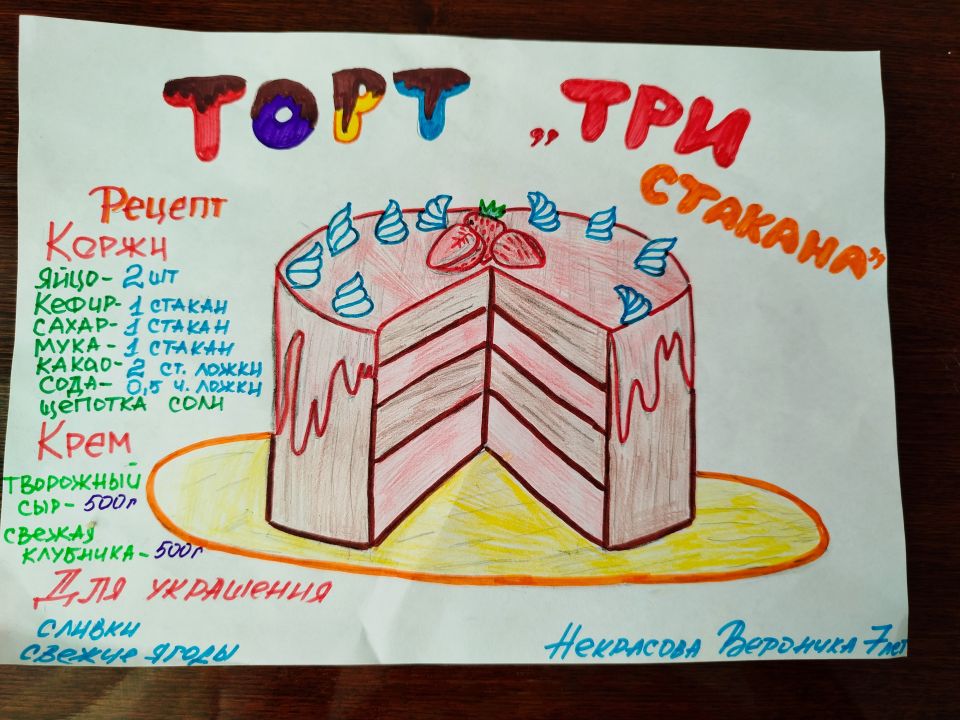 ТОРТ „ТРИ
СТАКАНА”
Рецепт
Коржи
яйцо- 2 шт
Кефир- 1 стакан
сахар- 1 стакан
мука- 1 стакан
какао- 2 ст. ложки
сода- 0,5 ч. ложки
щепотка соли
Крем
творожный
сыр- 500г
свежая
клубника- 500г
Для украшения
сливки
свежие ягоды
Некрасова Вероника 7 лет